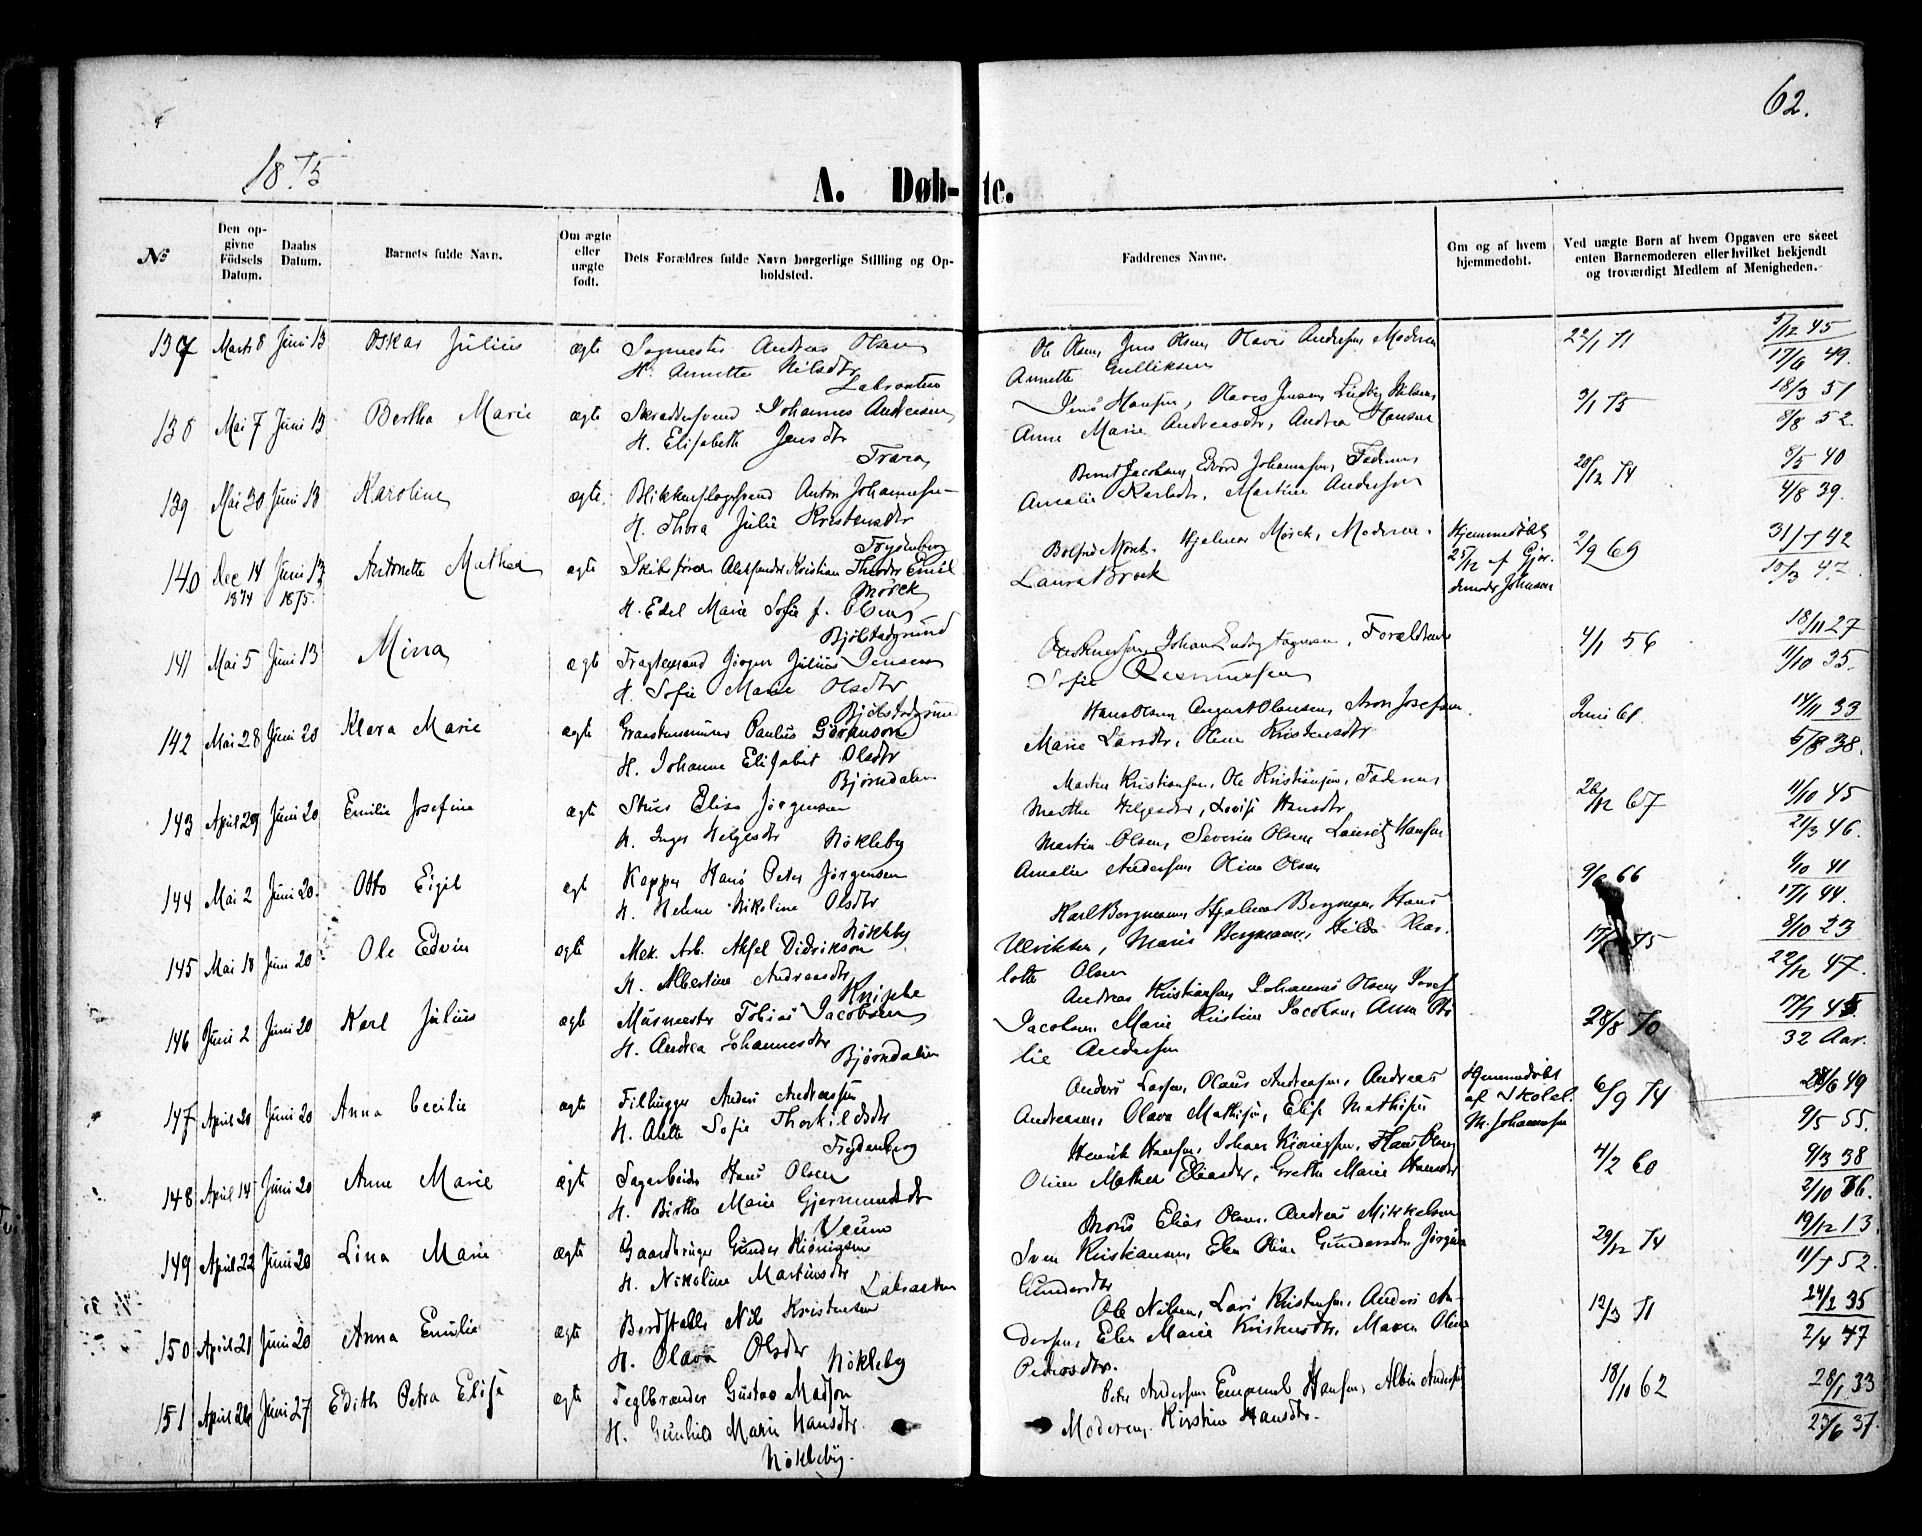 62.
1875
A. Døb-te.
№
Den opgivne Födsels Datum.
Daabs Datum.
Barnets fulde Navn.
Om ægte eller uægte født.
Dets Forældres fulde Navn borgerlige Stilling og Opholdsted.
Faddrenes Navne.
Om og af hvem hjemmedøbt.
Ved uægte Børn af hvem Opgaven ere skeet enten Barnemoderen eller hvilket bekjendt og troværdigt Medlem af Menigheden.
137 Marts 8 Juni 13 Oskar Julius ægte Sagmester Andreas Olsen
H. Annette Nilsdtr
Ole Olsen, Jens Olsen, Olavis Andersen, Moderen
Annette Gulliksen
22/1 71
5/12 45
17/6 49.
138 Mai 7 Juni 13 Bertha Marie ægte Skræddersvend Johannes Andersen
H. Elisabeth Jensdtr
Trara
Jens Hansen, Olaves Jensen, Ludvig Nilsen
Anne Marie Andreasdtr, Andrea Hansen
3/1 75
18/3 51
8/8 52
139 Mai 30 Juni 13 Karoline ægte Blikkenslagersvend Anton Johannesen
H. Thora Julie Kristensdtr
Frydenberg
Bernt Jacobsen, Edvard Johannesen, Faderen
Amalie Karlsdtr, Martine Andersen
28/12 74
8/5 40
4/8 39.
140 Dec 14 1874 Juni 13 1875. Antonette Mathea ægte Skibsfører Aleksander Kristian Theodor Emil
Mørck
H. Edel Marie Sofie f. Olsen
Bjølstadgrund
Hjalmar Mørck, Moderen
Laura Brock
Hjemmedøbt
25/12 af Gjor-
demoder Johnsen
2/9 69
31/7 42
15/3 47.
141 Mai 5 Juni 13 Mina ægte Fragtemand Jørgen Julius Jensen
H. Sofie Marie Olsdtr
Bjølstadgrund
Forældrene
Sofie Rasmussen
4/1 56
18/11 27
11/10 35.
142 Mai 28 Juni 20 Klara Marie ægte Graastensmurer Paulus Göranson
H. Johanne Elisabet Olsdtr
Bjørndalen
Hans Olsen, August Olaussen, Aron Josefsen
Marie Larsdtr, Oline Kristensdtr
Juni 61.
14/11 33
5/8 38.
143 April 29 Juni 20 Emilie Josefine ægte Skuer Elias Jørgensen
H. Inger Helgesdtr Nökleby
Martin Kristiansen, Ole Kristiansen, Faderen
Marthe Helgesdtr, Lovise Hansdtr
26/12 67
11/10 45
21/3 46.
144 Mai 2 Juni 20 Otto Eigil ægt Kapper Hans Peter Jörgensen
H. Helene Nikoline Olsdtr
Nökleby
Martin Olsen, Severin Olsen, Lauritz Hansen
Amalie Andersen, Oline Olsen
9/6 66
4/10 41
17/1 44.
145 Mai 18 Juni 20 Ole Edvin ægte Mek. Arb. Aksel Didrikson
H. Albertine Andreasdtr
Kniphe
Karl Bergmann, Hjalmar Bergmann, Hans
Ulriksen, Marie Bergmann, Hilda Char-
lotte Olsen
8/10 23
22/12 47.
146 Juni 2 Juni 20 Karl Julius ægte Murmester Tobias Jacobsen
H. Andrea Johannesdtr
Bjørndalen
Andreas Kristiansen, Johannes Olsen, Josef
Jacobsen, Marie Kristine Jacobsen, Anna Oti-
lie Andersen
28/8 70
17/7 45
32 Aar.
147 April 20 Juni 20 Anna Cecilie ægte Filhugger Anders Andreassen
H. Anette Sofie Thorkildsdtr
Frydenberg
Anders Larsen, Olaus Andreasen, Andreas
Andreasen, Olava Mathisen, Elise Mathisen
Hjemmedøbt
af Skolel.
M. Johannesen
6/9 74
24/6 49
9/5 55.
148 April 14 Juni 20 Anne Marie ægte Sagarbeider Hans Olsen
H. Birthe Marie Gjermundsdtr
Veum
Henrik Hansen, Johan Kionigsen, Hans Olsen
Oline Mathea Eliasdtr, Grethe Marie Hansdtr
4/2 60
9/3 38
2/10 36.
149 April 22 Juni 20 Lina Marie ægte Gaardbruger Gunder Kiönigsen
H. Nikoline Martinsdtr
Labraaten
Mons Elias Olsen, Andreas Mikkelsen
Sven Kristiansen, Elen Oline Gundersdtr, Jörgine
Gundersdtr
29/12 74
19/12 13.
11/7 52.
150 April 21 Juni 20 Anna Emilie ægte Bordstabler Nils Kristensen
H. Olava Olsdtr Nökleby
Ole Nilsen, Lars Kristensen, Anders An-
dersen, Elen Marie Kristensdtr, Maren Oline
Pedersdtr.
12/3 71
24/2 35
2/4 47
151 April 26 Juni 27 Edith Petra Elise ægte Teglbrænder Gustav Madsen
H. Gunhild Marie Hansdtr.
Nökleby.
Peter Andersen, Emanuel Hansen, Albin Andersen
Moderen, Kirstine Hansdtr.
18/10 62
28/1 33
23/6 37.